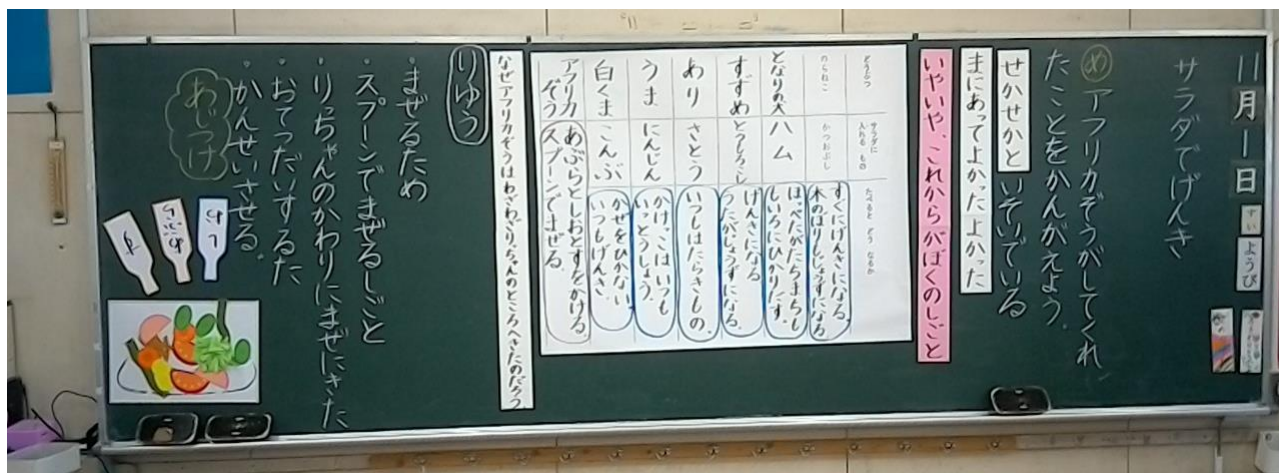 十一月一日
すいようび
サラダでげんき
め アフリカぞうがしてくれ
たことをかんがえよう。
せかせかと いそいでいる
まにあってよかったよかった
いやいや、これからがぼくのしごと
どうぶつ
サラダに入れるもの
たべると どう なるか
のらねこ
かつおぶし
すぐにげんきになる。
木のぼりじょうずになる
となりの犬
ハム
ほっぺたがたちまちも
もいろにひかりだす。
すずめ
とうもろこし
げんきになる
うたがじょうずになる。
あり
さとう
いつもはたらきもの。
うま
にんじん
かけっこはいつも
いっとうしょう。
白くま
こんぶ
かぜをひかない、
いつもげんき。
アフリカぞう
あぶらとしおとすをかける。
スプーンでまぜる。
なぜアフリカぞうはわざわざりっちゃんのところへきたのだろう
りゆう
・まぜるため
・スプーンでまぜるしごと
・りっちゃんのかわりにまぜにきた
・おてつだいするた
・かんせいさせる。
あじつけ
しお
あぶら
す